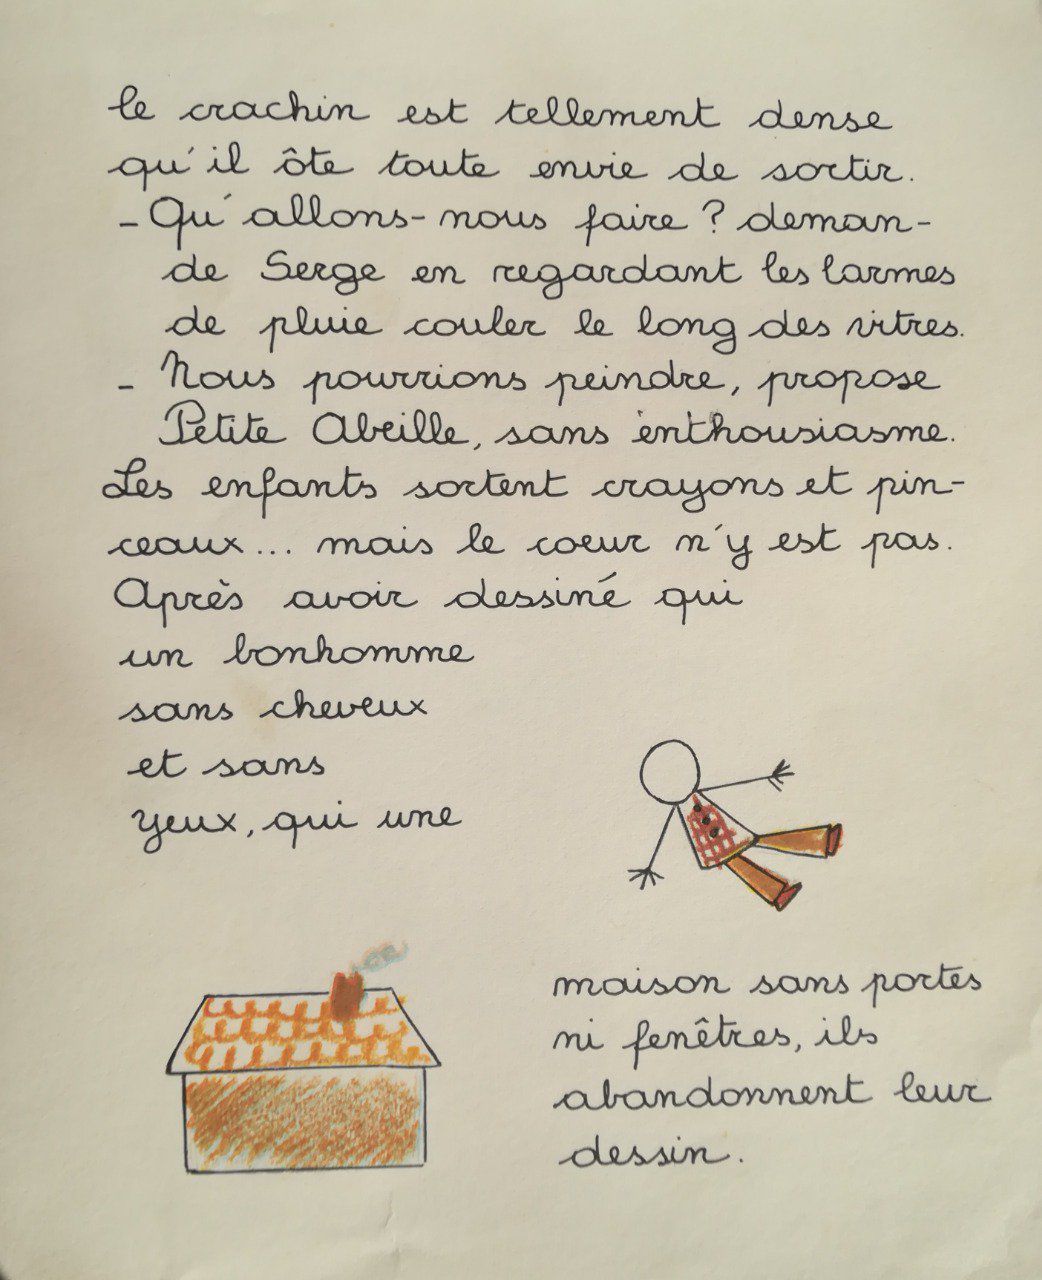 le crachin est tellement dense
qu'il ôte toute envie de sortir.
- Qu'allons-nous faire ? deman-
de Serge en regardant les larmes
de pluie couler le long des vitres.
- Nous pourrions peindre, propose
Petite Abeille, sans enthousiasme.
Les enfants sortent crayons et pin-
ceaux... mais le coeur n'y est pas.
Après avoir dessiné qui
un bonhomme
sans cheveux
et sans
yeux, qui une
maison sans portes
ni fenêtres, ils
abandonnent leur
dessin.